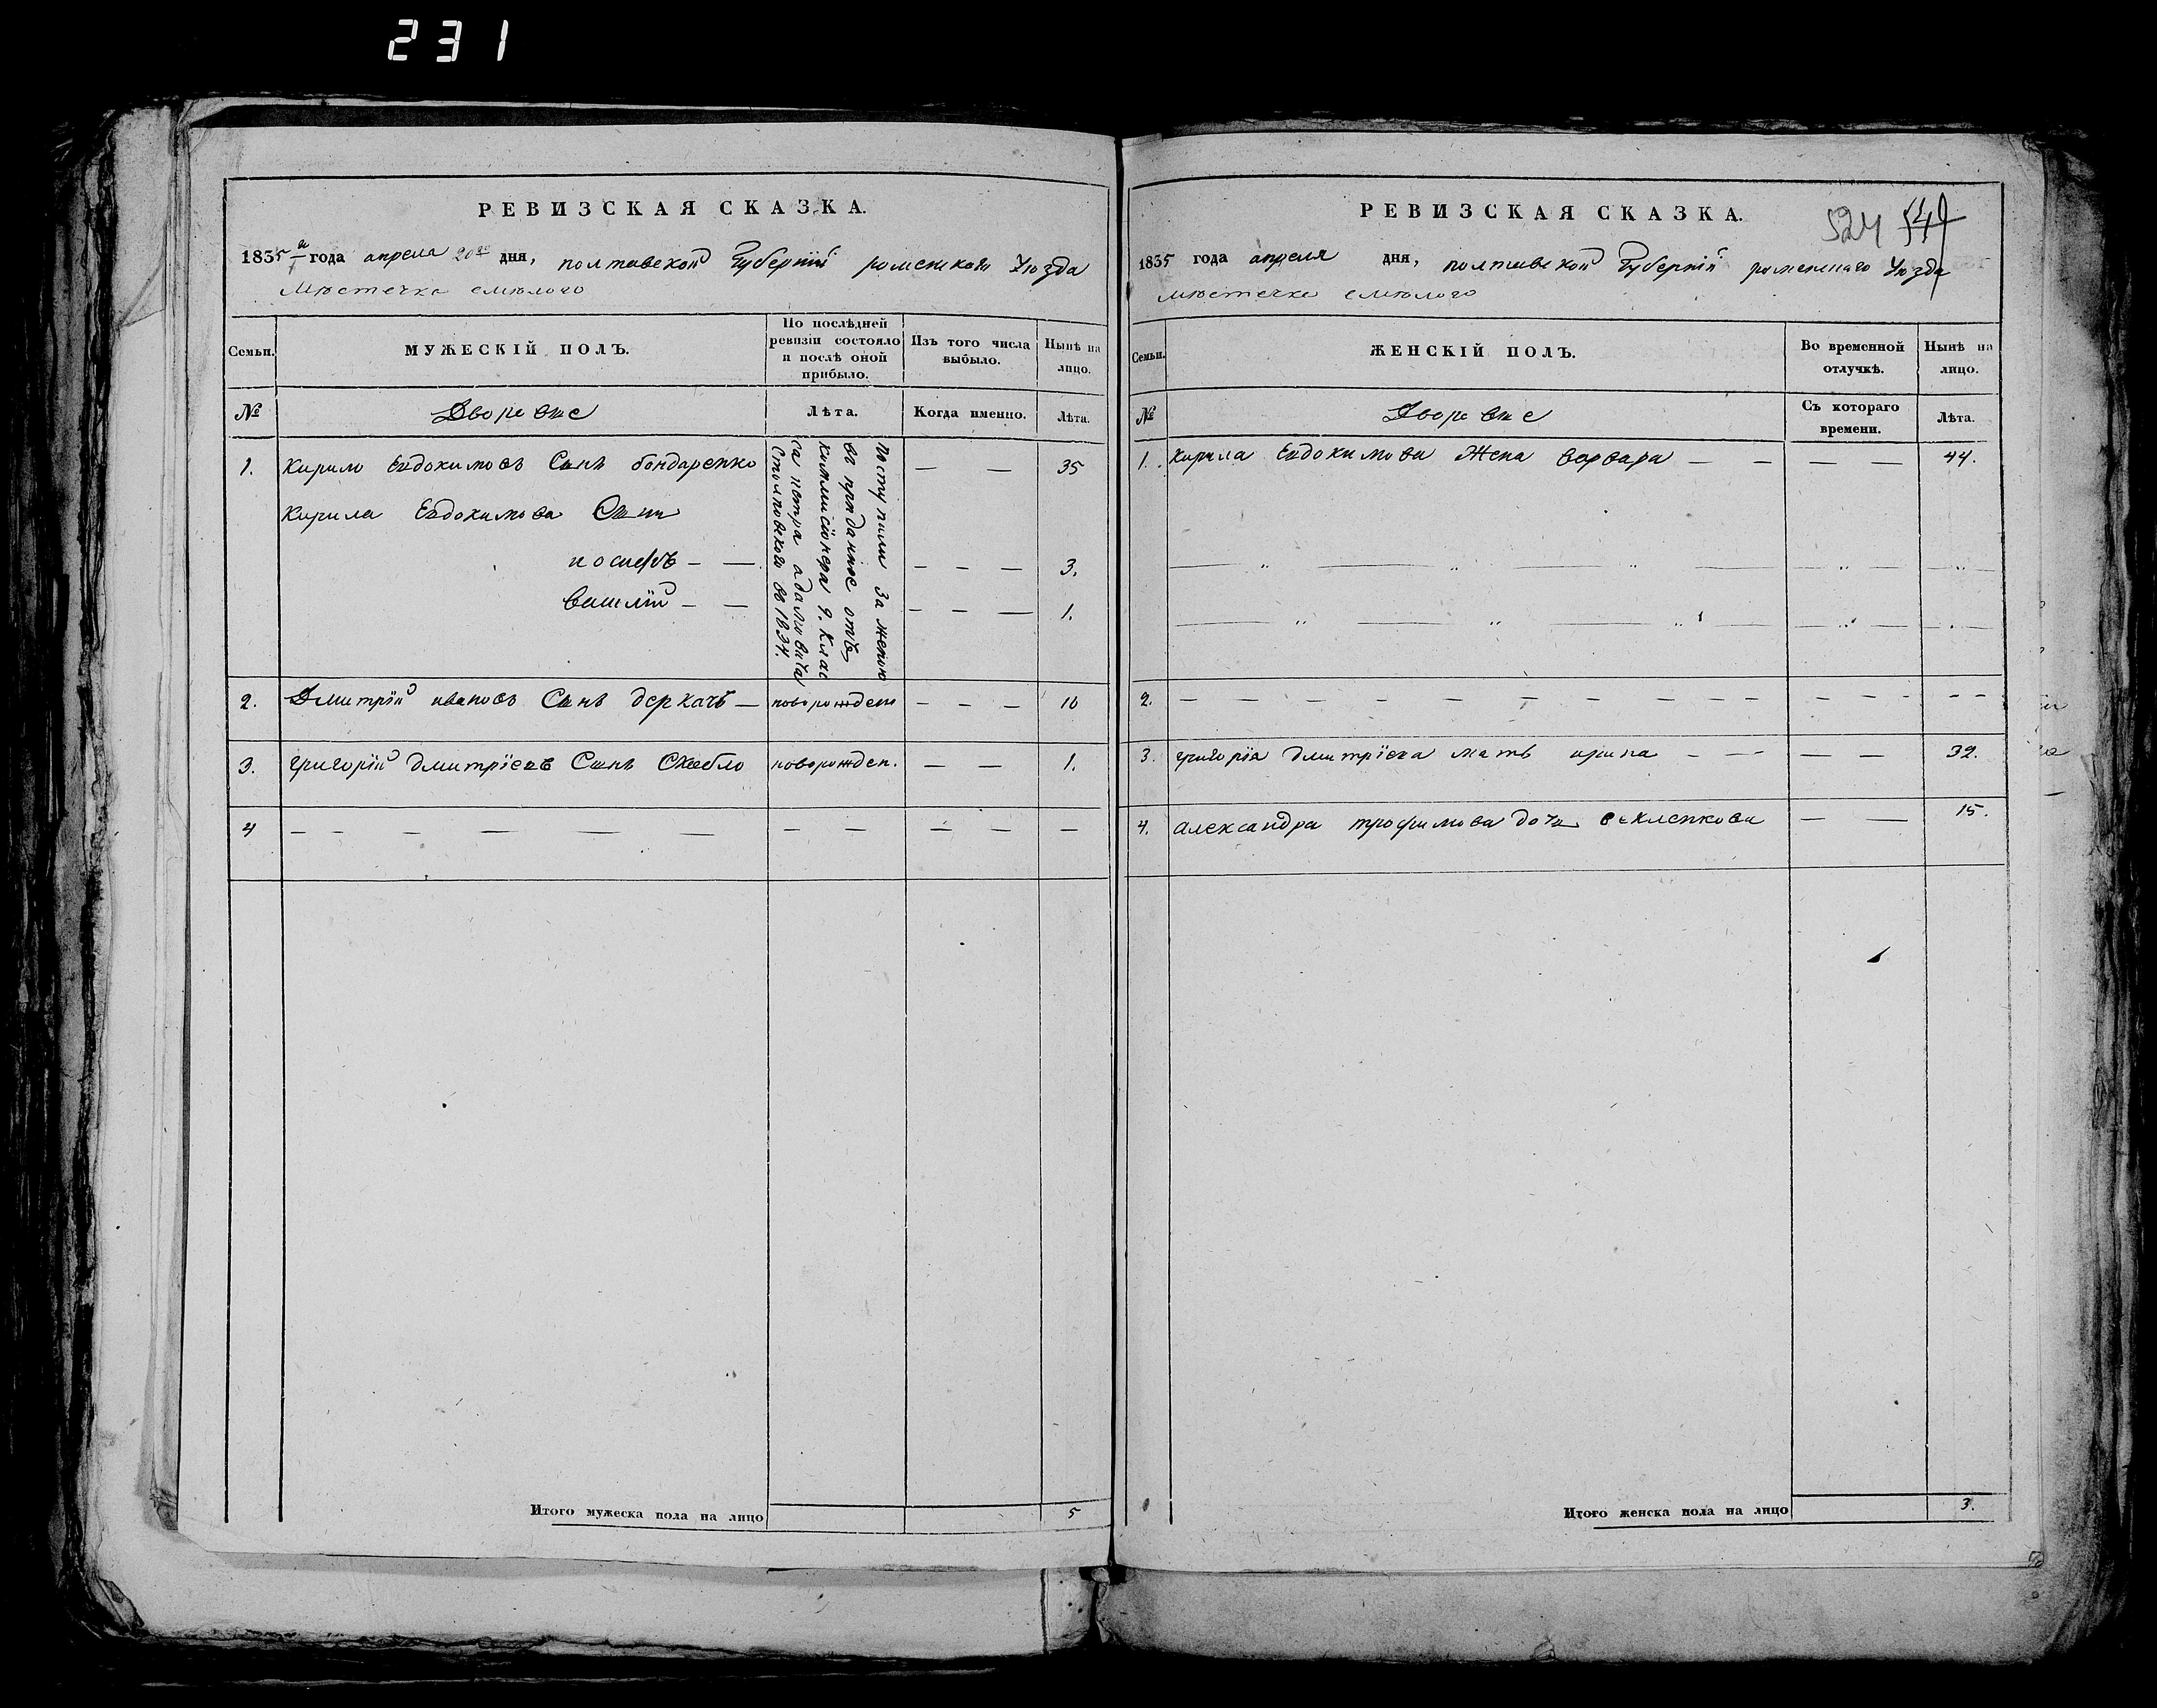 231
РЕВИЗСКАЯ СКАЗКА.
1835 года апреля 20 дня, полтавской Губерніи роменского Уѣзда
Мѣстечка смѣлого
Семьи. МУЖЕСКІЙ ПОЛЪ. По послѣдней ревизіи состояло и послѣ оной прибыло. Изъ того числа выбыло. Нынѣ на лицо.
№ Дворовые Лѣта. Когда именно. Лѣта.
1. Кирило Евдокимовъ Сынъ бондаренко — — 35
Кирила Евдокимова Сыни
иосифъ — — — — — 3.
василій — — — — — 1.
Поступили За женою
въ приданное отъ
коммисіонера 9. Клас
са петра адамовича
Столповского въ 1834.
2. Дмитрій ивановъ Сынъ деркачъ — новорожден — — — 10
3. григорій дмитріевъ Сынъ новорожден. — — 1.
4 — — — — — — — — — — — —
Итого мужеска пола на лицо 5
РЕВИЗСКАЯ СКАЗКА.
524
1835 года апреля дня, полтавской Губерніи роменского Уѣзда
мѣстечка смѣлого
Семьи. ЖЕНСКІЙ ПОЛЪ. Во временной отлучкѣ. Нынѣ на лицо.
№ Дворовые Съ котораго времени. Лѣта.
1. Кирила Евдокимова Жена варвара — — — — 44.
2. — — — — — — — — — — — — — —
3. григорія дмитріева мать ирина — — — — 32.
4. александра трофимова дочь — — 15.
Итого женска пола на лицо 3.